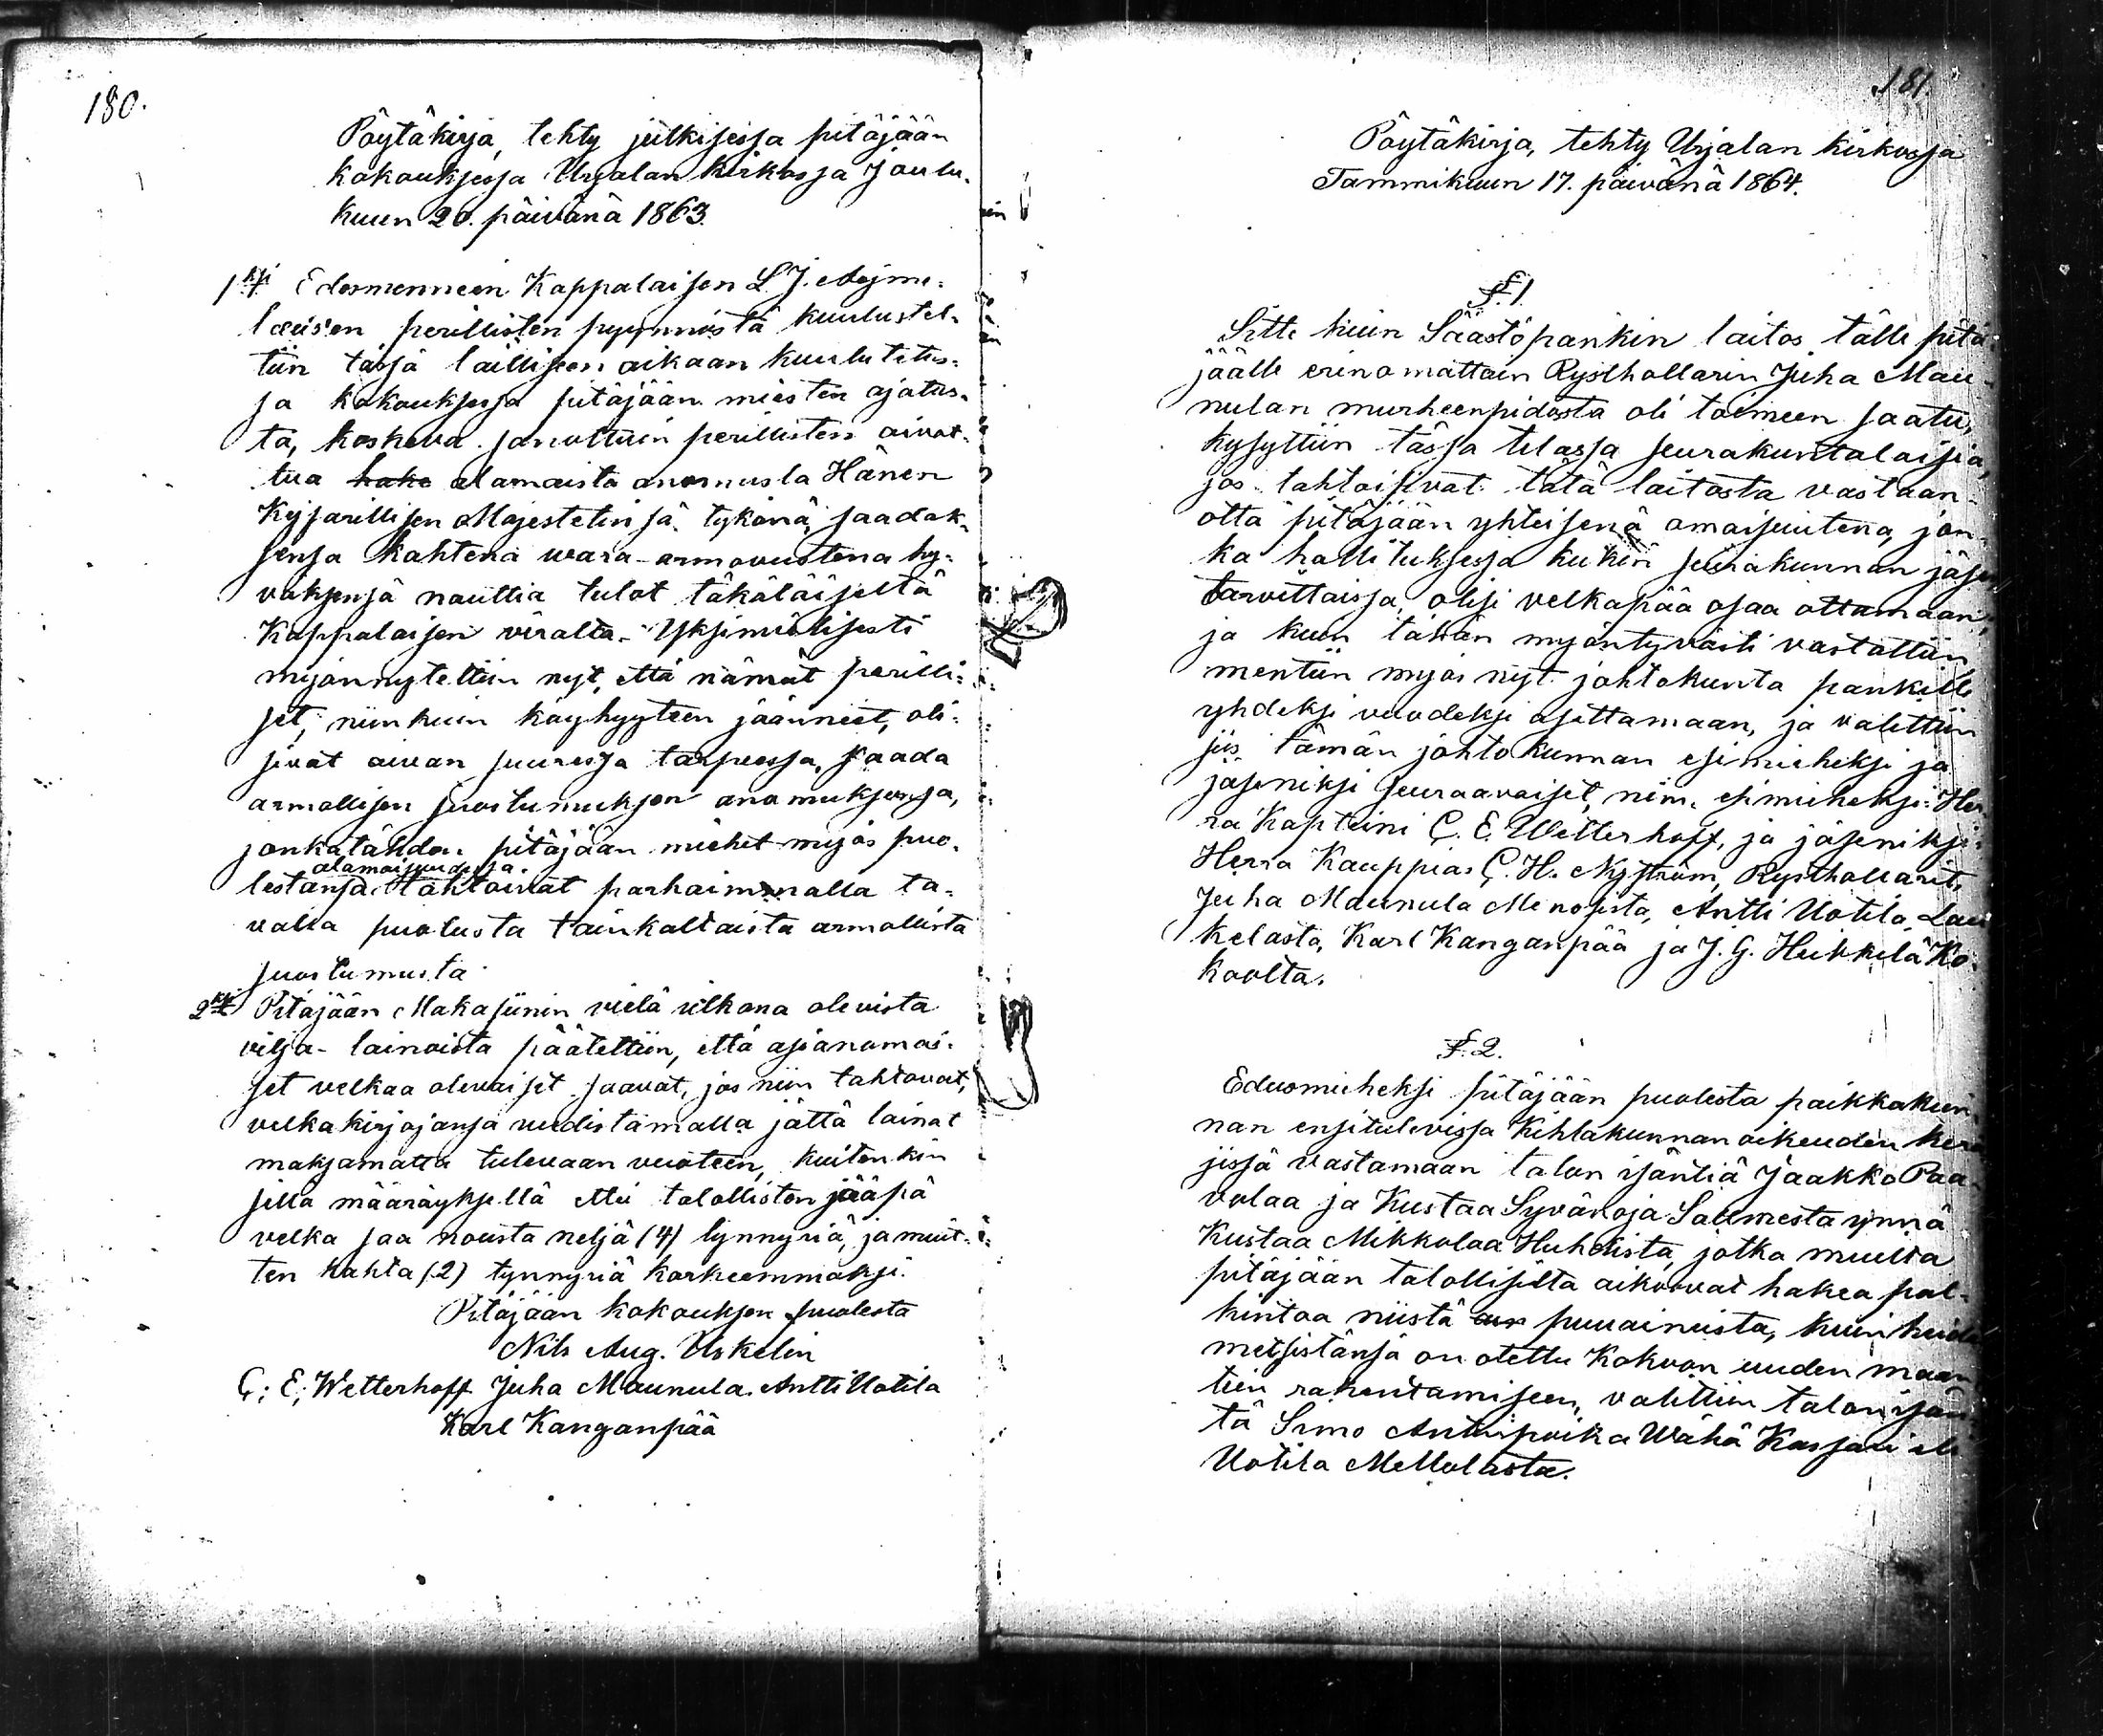 180.
Pöytäkirja, tehty julkisessa pitäjään
kokouksessa Urjalan Kirkossa Joulu-
kuun 20. päivänä 1863.
1ksi Edesmenneen Kappalaisen L. J.
perillisten pyynnöstä kuulustel-
tiin tässä lailliseen aikaan kuulutetus-
sa kokouksessa pitäjään miesten ajatus-
ta, koskeva sanottuin perillisten aivot-
tua hake alamaista anomusta Hänen
Kejsarillisen Majestetinsä tykönä, saadak-
sensa kahtena wara-armovuotena hy-
väksensä nauttia tulot täkäläiseltä
Kappalaisen viralta. Yksimielisesti
myönnyteltiin nyt, että nämät perilli-
set, niinkuin köyhyyteen jäänneet, oli-
sivat aivan suuressa tarpeessa, saada
armollisen suostumuksen anomuksensa,
jonkatähden pitäjään miehet myös puo-
alamaisuudessa
lestansa tahtoivat parhaimmalla ta-
valla puolusta tainkaltaista armollista
suostumusta.
2ksi Pitäjään Makasiinin vielä ulkona olevista
vilja-lainoista päätettiin, että asianomai-
set velkaa olevaiset saavat, jos niin tahtovat,
velkakirjojansa uudistamalla jättä lainat
maksamatta tulevaan vuoteen, kuitenkin
sillä määräyksellä että talollisten jääpä
velka saa nousta neljä (4) tynnyriä, ja muit-
ten kahta (2) tynnyriä korkeemmaksi.
Pitäjään kokouksen puolesta
Nils Aug. Uskelin
C; E; Wetterhoff Juha Maunula. Antti Uotila
Karl Kanganpää
181.
Pöytäkirja, tehty Urjalan kirkossa
Tammikuun 17. päivänä 1864.
§. 1.
Sitte kuin Säästöpankin laitos tälle pitä-
jäälle erinomattain Rysthollarin Juha Mau-
nulan murheenpidosta oli toimeen saatu,
kysyttiin tässä tilassa seurakuntalaisia,
jos tahtoisivat tätä laitosta vastaan-
otta pitäjään yhteisenä omaisuutena, jon-
ka hallituksessa kukin seurakunnan jäsen
tarvittaissa, olisi velkapää osaa ottamaan,
ja kuin tähän myöntyväisti vastattiin
mentiin myös nyt johtokunta pankille
yhdeksi vuodeksi asettamaan, ja valittiin
siis tämän johtokunnan esimieheksi ja
jäseniksi seuraavaiset, nim. esimieheksi: Her-
ra Kapteini C. E. Wetterhoff, ja jäseniksi:
Herra Kauppias C. H. Nyström, Rysthollarit,
Juha Maunula Menosista, Antti Uotila Lau-
kelasta, Karl Kanganpää ja J. G. Heikkilä Ko-
koolta.
§. 2.
Edusmieheksi pitäjään puolesta paikkakun-
nan ensitulevissa Kihlakunnan oikeuden kerä-
jissä vastamaan talon isäntiä Jaakko Paa-
volaa ja Kustaa Syvänoja Salmesta ynnä
Kustaa Mikkolaa Huhdista, jotka muilta
pitäjään talollisilta aikoovat hakea pal-
kintoa niistä puuaineista, kuin heidä
metsistänsä on otettu Kokvon uuden maan
tien rakentamiseen, valittiin talon isän-
tä Simo Antinpoika Wähä Kassari eli
Uotila Mellolasta.